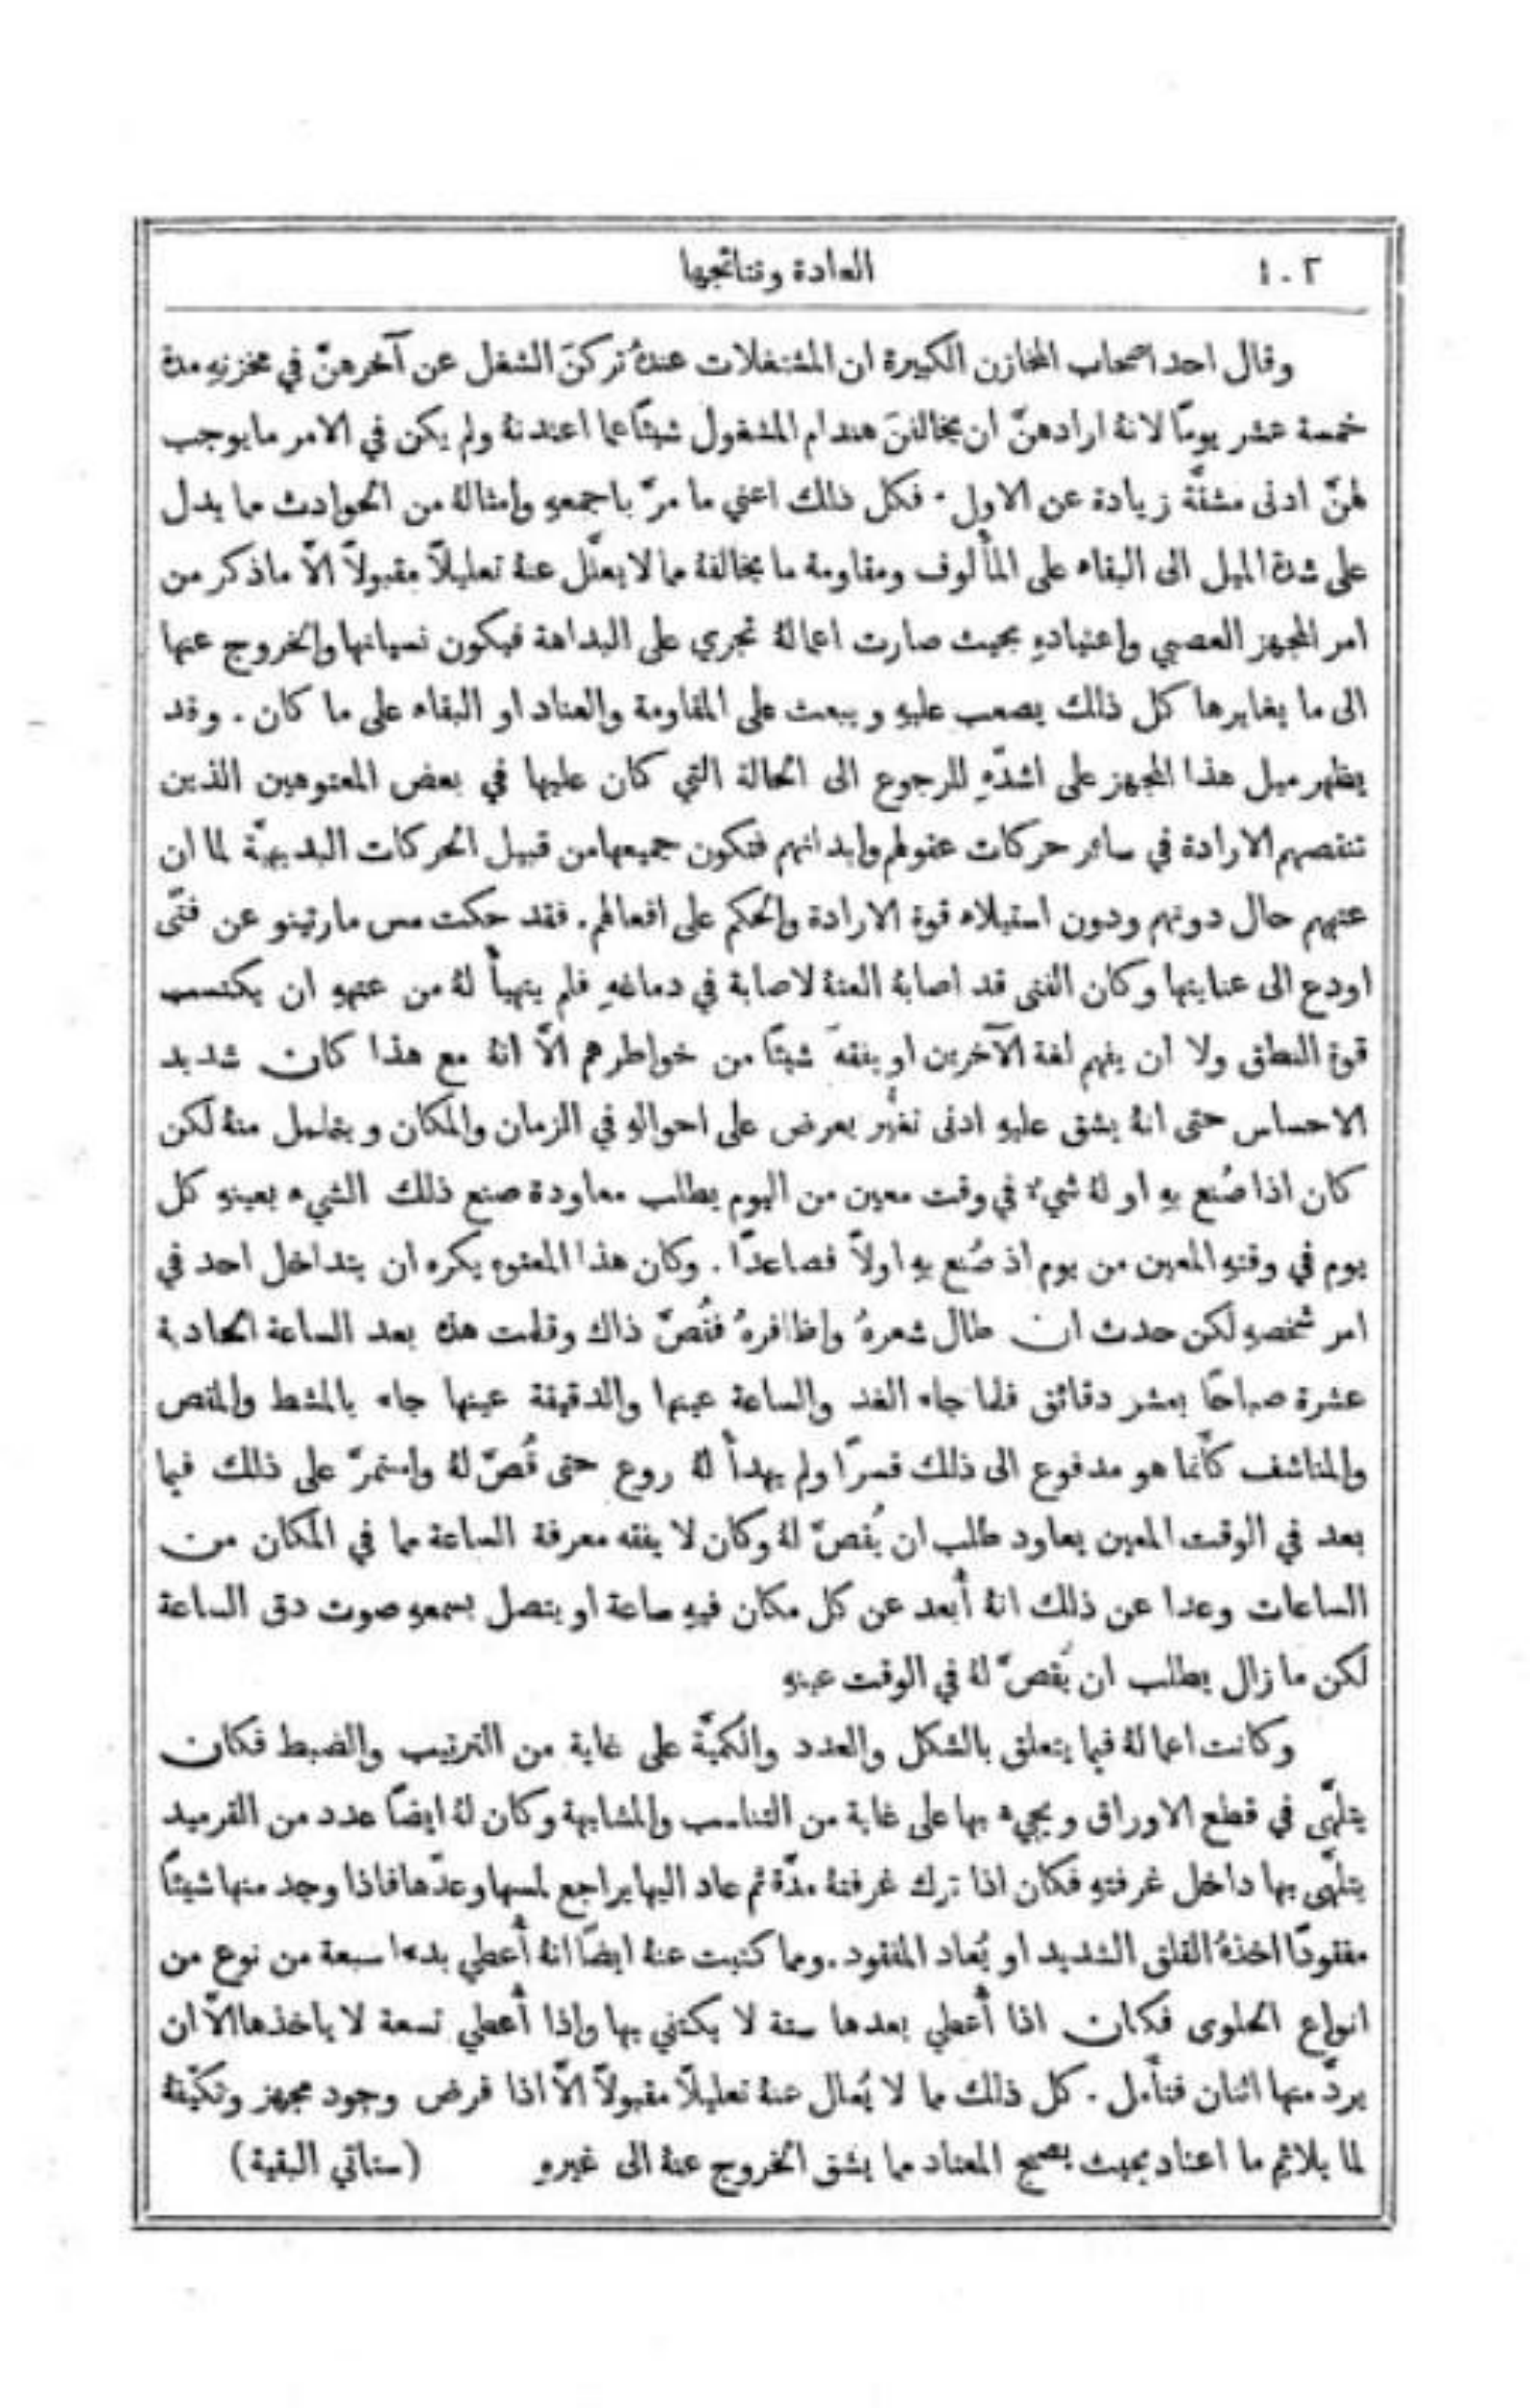 ٤٠٢ العادة ونتائجها
وقال احد اصحاب المخازن الكبيرة ان المشتغلات عندهُ تركنَ الشغل عن آخرهنّ في مخزنهِ مدة
خمسة عشر يومًا لانهُ ارادهنّ ان يخالفنَ هندام المشغول شيئًا عما اعتدنهُ ولم يكن في الامر ما يوجب
لهنّ ادنى مشقَّة زيادة عن الاول. فكل ذلك اعني ما مرّ باجمعهِ وامثالهُ من الحوادث مما يدل
على شدة الميل الى البقاء على المألوف ومقاومة ما يخالفهُ مما لا يعلَّل عنهُ تعليلاً مقبولاً الاَّ ما ذكر من
امر المجهز العصبي واعتيادهِ بحيث صارت اعمالهُ تجري على البداهة فيكون نسيانها والخروج عنها
الى ما يغايرها كل ذلك يصعب عليهِ ويبعث على المقاومة والعناد او البقاء على ما كان. وقد
يظهر ميل هذا المجهز على اشدّهِ للرجوع الى الحالة التي كان عليها في بعض المعتوهين الذين
تنقصهم الارادة في سائر حركات عقولهم وابدانهم فتكون جميعها من قبيل الحركات البديهيَّة لما ان
عتههم حال دونهم ودون استيلاء قوة الارادة والحكم على افعالهم. فقد حكت مس مارتينو عن فتًى
اودع الى عنايتها وكان الفتى قد اصابهُ العتهُ لاصابة في دماغهِ فلم يتهيأ لهُ من عتههِ ان يكتسب
قوة النطق ولا ان يفهم لغة الآخرين او يفقهَ شيئًا من خواطرهم الاَّ انهُ مع هذا كان شديد
الاحساس حتى انهُ يشق عليهِ ادنى تغيُّر يعرض على احوالهِ في الزمان والمكان ويتململ منهُ لكن
كان اذا صُنع بهِ او لهُ شيءٌ في وقت معين من اليوم يطلب معاودة صنع ذلك الشيء بعينهِ كل
يوم في وقتهِ المعين من يوم اذ صُنع بهِ اولاً فصاعدًا. وكان هذا المعتوه يكره ان يتداخل احد في
امر شخصهِ لكن حدث ان طال شعرهُ واظافرهُ فقُصّ ذاك وقلمت هذه بعد الساعة الحادية
عشرة صباحًا بعشر دقائق فلما جاء الغد والساعة عينها والدقيقة عينها جاء بالمشط والمقص
والمناشف كأنما هو مدفوع الى ذلك قسرًا ولم يهدأ لهُ روع حتى قُصّ لهُ واستمرّ على ذلك فيما
بعد في الوقت المعين يعاود طلب ان يُقصّ لهُ وكان لا يفقه معرفة الساعة مما في المكان من
الساعات وعدا عن ذلك انهُ أُبعد عن كل مكان فيهِ ساعة او يتصل بسمعهِ صوت دق الساعة
لكن ما زال يطلب ان يُقصّ لهُ في الوقت عينهِ
وكانت اعمالهُ فيما يتعلق بالشكل والعدد والكميَّة على غاية من الترتيب والضبط فكان
يتلهّى في قطع الاوراق ويجيء بها على غاية من التناسب والمشابهة وكان لهُ ايضًا عدد من القرميد
يتلهّى بها داخل غرفتهِ فكان اذا ترك غرفتهُ مدَّة ثم عاد اليها يراجع لمسها وعدّها فاذا وجد منها شيئًا
مفقودًا اخذهُ القلق الشديد او يُعاد المفقود. ومما كتبت عنهُ ايضًا انهُ أُعطي بدءا سبعة من نوع من
انواع الحلوى فكان اذا أُعطي بعدها ستة لا يكتفي بها واذا أُعطي تسعة لا ياخذها الاَّ ان
يردّ منها اثنان فتأمل. كل ذلك مما لا يُعلل عنهُ تعليلاً مقبولاً الاَّ اذا فرض وجود مجهز وتكيُّفهُ
لما يلائم ما اعتاد بحيث يصبح المعتاد مما يشق الخروج عنهُ الى غيرهِ (ستاتي البقية)